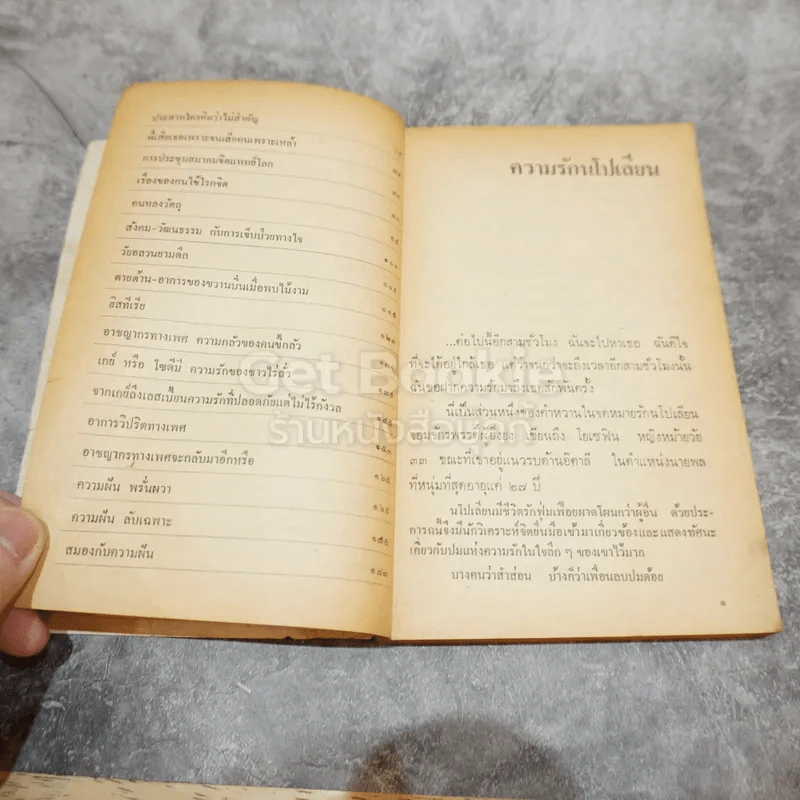 ประสาทใครคิดว่าไม่สำคัญ
ฉันเสียเธอเพราะขนเสียคนเพราะเหล้า
การประชุมสมาคมจิตแพทย์โลก
เรื่องของคนไข้โรคจิต
คนหลงวัตถุ
สังคม-วัฒนธรรม กับการเจ็บป่วยทางใจ
วัยอลวนยามดึก
ตายด้าน-อาการของขวานบิ่นเมื่อพบไม้งาม
ฮิสทีเรีย
อาชญากรทางเพศ ความกลัวของคนขี้กลัว
เกย์ หรือ โซดีมี่ ความรักของชาวไร่ถั่ว
จากเกย์ถึงเลสเบี้ยนความรักที่ปลอดภัยแต่ไม่ไร้กังวล
อาการวิปริตทางเพศ
อาชญากรทางเพศจะกลับมาอีกหรือ
ความฝัน พรั่นผวา
ความฝัน ลับเฉพาะ
สมองกับความฝัน
๑๘๓
ความรักนโปเลียน
...ต่อไปนี้อีกสามชั่วโมง ฉันจะไปหาเธอ ฉันดีใจ
ที่จะได้อยู่ใกล้เธอ แต่ว่าจนกว่าจะถึงเวลาอีกสามชั่วโมงนั้น
ฉันขอฝากความรักมาถึงเธอสักพันครั้ง
นี่เป็นส่วนหนึ่งของคำหวานในจดหมายรักนโปเลียน
จอมจักรพรรดิ์ผู้เกรียงไกร เขียนถึง โยเซฟิน หญิงหม้ายวัย
๓๓ ขณะที่เขาอยู่แนวรบด้านอิตาลี ในตำแหน่งนายพล
ที่หนุ่มที่สุดอายุแค่ ๒๗ ปี
นโปเลียนมีชีวิตรักฟุ่มเฟือยผาดโผนกว่าผู้อื่น ด้วยประ-
การฉะนี้จึงมีนักวิเคราะห์จิตยื่นมือเข้ามาเกี่ยวข้องและแสดงทัศนะ
เกี่ยวกับปมแห่งความรักในใจลึก ๆ ของเขาไว้มาก
บางคนว่าสำส่อน บ้างก็ว่าเพื่อนลบปมด้อย
๑
Get Booky
ร้านหนังสือนุ๊กกี้